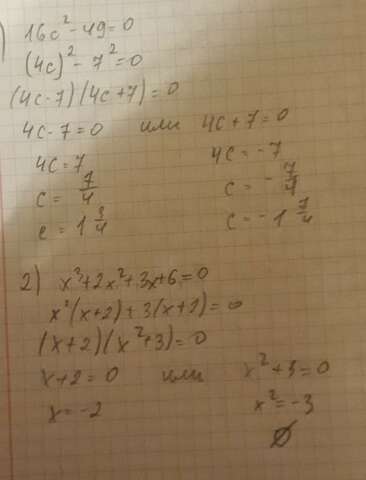 ) 16c² - 49 = 0
(4c)² - 7² = 0
(4c-7)(4c+7) = 0
4c-7 = 0 или 4c+7 = 0
4c = 7 4c = -7
c = 7/4 c = -7/4
c = 1 3/4 c = -1 7/4
2) x³+2x²+3x+6=0
x²(x+2)+3(x+2)=0
(x+2)(x²+3)=0
x+2=0 или x²+3=0
x=-2 x²=-3
∅